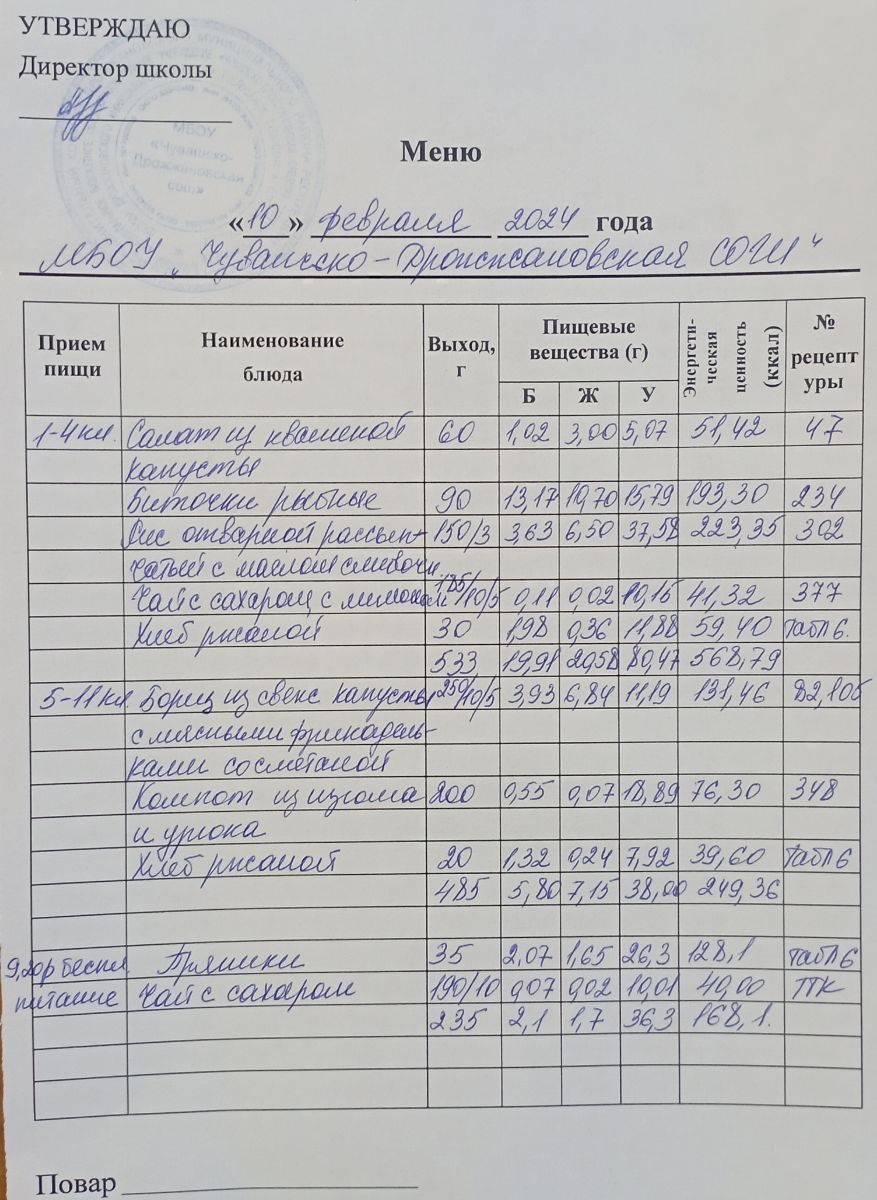 УТВЕРЖДАЮ
Директор школы
МБОУ
«Чувашско-
Дрожжановская
сош»
Меню
«10» февраля 2024 года
МБОУ „Чувашско-Дрожжановская СОШ“
Прием пищи Наименование блюда Выход, г Пищевые вещества (г) Б Ж У Энергети-ческая ценность (ккал) № рецептуры
1-4 кл. Салат из квашеной 60 1,02 3,00 5,07 51,42 47
капусты
Биточки рыбные 90 13,17 10,70 15,79 193,30 234
Рис отварной рассып- 150/3 3,63 6,50 37,58 223,35 302
чатый с маслом сливочн.
Чай с сахаром с лимоном 185/10/5 0,11 0,02 10,15 41,32 377
Хлеб ржаной 30 1,98 0,36 11,88 59,40 табл 6.
533 19,91 20,58 80,47 568,79
5-11 кл. Борщ из свеж капусты 250/10/5 3,93 6,84 11,19 131,46 82,105
с мясными фрикадель-
ками со сметаной
Компот из изюма 200 0,55 0,07 18,89 76,30 348
и урюка
Хлеб ржаной 20 1,32 0,24 7,92 39,60 табл 6
485 5,80 7,15 38,00 249,36
9,20р беспл. Пряники 35 2,07 1,65 26,3 128,1 табл 6
питание Чай с сахаром 190/10 0,07 0,02 10,01 40,00 ПК
235 2,1 1,7 36,3 168,1.
Повар